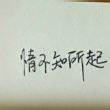 情不知所起